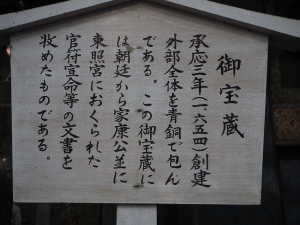 御宝蔵
承応三年(一、六五四)創建
外部全体を青銅で包ん
である。この御宝蔵に
は朝廷から家康公並に
東照宮におくられた
官符宣命等の文書を
收めたものである。